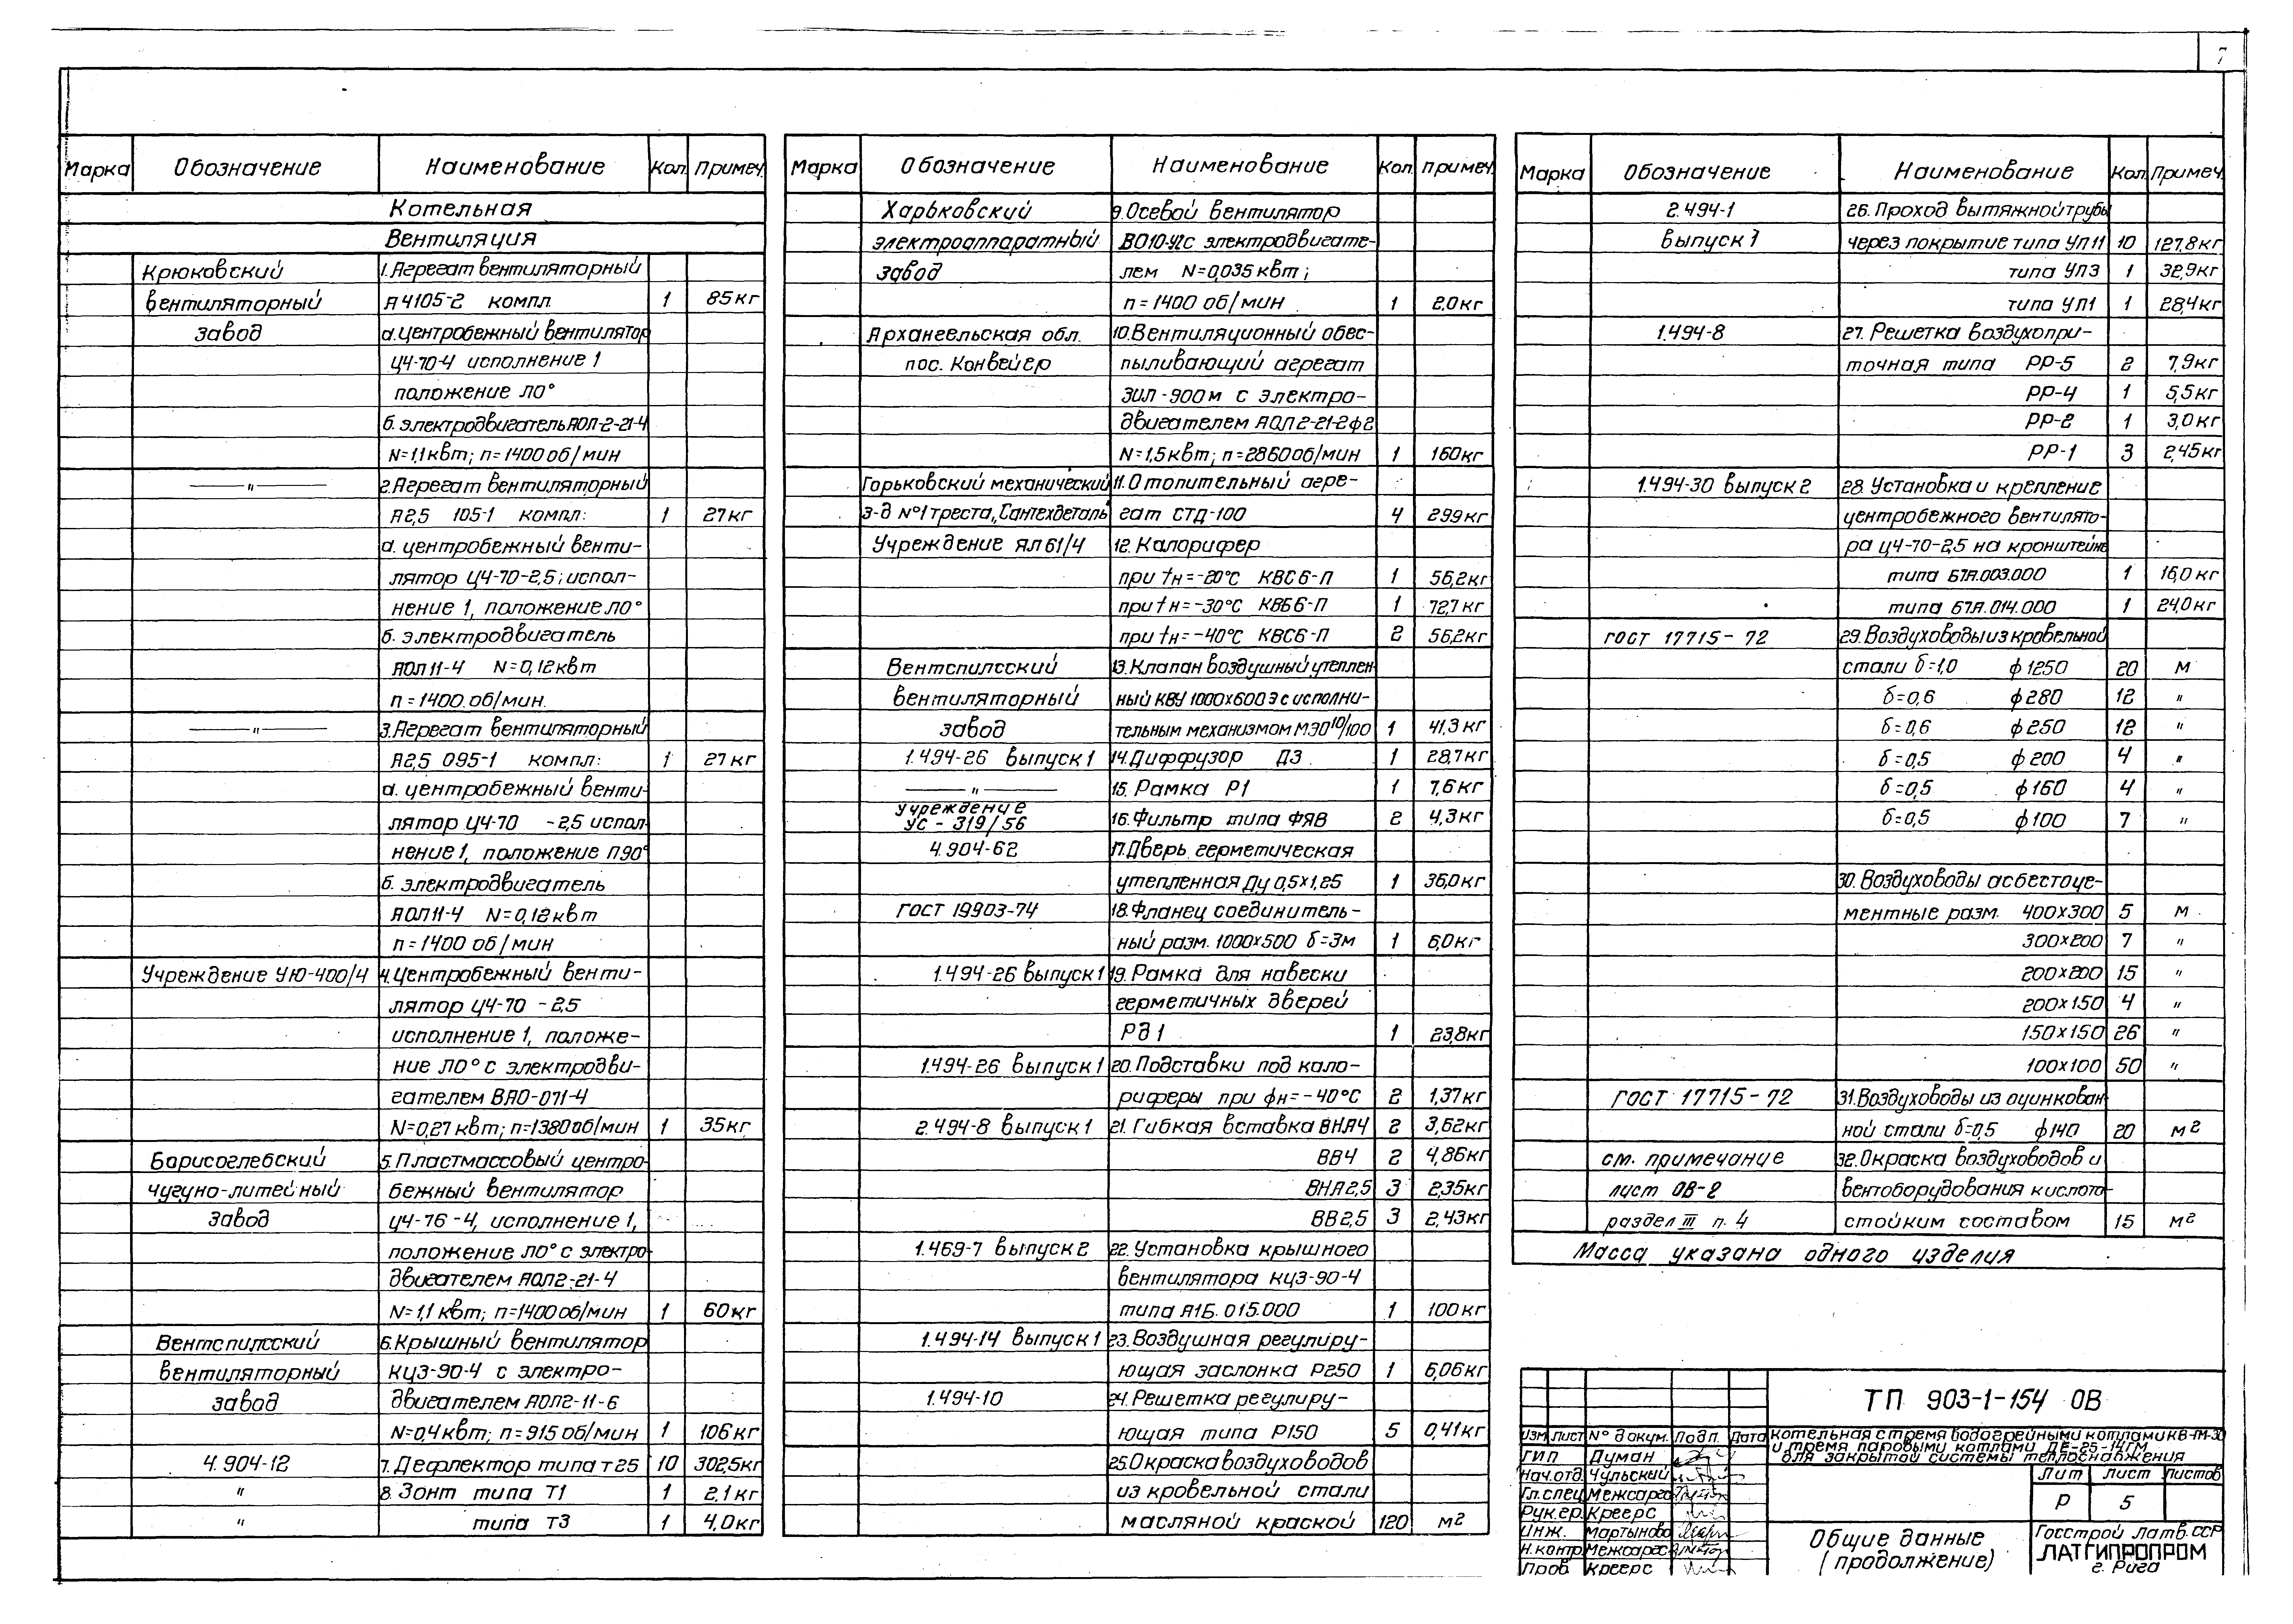 7
Марка Обозначение Наименование Кол. Примеч.
Котельная
Вентиляция
Крюковский 1. Агрегат вентиляторный
вентиляторный А4105-2 компл 1 85кг
завод а. центробежный вентилятор
Ц4-70-4 исполнение 1
положение Л0°
б. электродвигатель АОЛ-2-21-4
N=1,1 квт; n=1400 об/мин
—"— 2. Агрегат вентиляторный
А2,5 105-1 компл: 1 27кг
а. центробежный венти-
лятор Ц4-70-2,5; испол-
нение 1, положение Л0°
б. электродвигатель
АОЛ11-4 N=0,12 квт
n=1400 об/мин.
—"— 3. Агрегат вентиляторный
А2,5 095-1 компл: 1 27кг
а. центробежный венти-
лятор Ц4-70 -2,5 испол-
нение 1, положение П90°
б. электродвигатель
АОЛ11-4 N=0,12 квт
n=1400 об/мин
Учреждение УЮ-400/4 4. Центробежный венти-
лятор Ц4-70 -2,5
исполнение 1, положе-
ние Л0° с электродви-
гателем ВАО-071-4
N=0,27 квт; n=1380об/мин 1 35кг
Борисоглебский 5. Пластмассовый центро-
чугуно-литейный бежный вентилятор
завод Ц4-76-4, исполнение 1,
положение Л0° с электро-
двигателем АОЛ2-21-4
N=1,1 квт; n=1400об/мин 1 60кг
Вентспилсский 6. Крышный вентилятор
вентиляторный КЦ3-90-4 с электро-
завод двигателем АОЛ2-11-6
N=0,4 квт; n=915 об/мин 1 106кг
4.904-12 7. Дефлектор типа Т25 10 302,5кг
" 8. Зонт типа Т1 1 2,1кг
" типа Т3 1 4,0кг
Марка Обозначение Наименование Кол. Примеч.
Харьковский 9. Осевой вентилятор
электроаппаратный ВО10-У2С электродвигате-
завод лем N=0,035 квт;
n=1400 об/мин 1 2,0кг
Архангельская обл. 10. Вентиляционный обес-
пос. Конвейер пыливающий агрегат
ЗИЛ-900м с электро-
двигателем АОЛ2-21-2ф2
N=1,5квт; n=2860об/мин 1 160кг
Горьковский механический 11. Отопительный агре-
з-д №1 треста „Сантехдеталь" гат СТД-100 4 299кг
Учреждение ЯЛ 61/4 12. Калорифер
при tн=-20°С КВС6-П 1 56,2кг
при tн=-30°С КВБ6-П 1 72,7кг
при tн=-40°С КВС6-П 2 56,2кг
Вентспилсский 13. Клапан воздушный утеплен-
вентиляторный ный КВУ 1000х600 Э с исполни-
завод тельным механизмом МЭО10/100 1 41,3кг
1.494-26 выпуск 1 14. Диффузор Д3 1 28,7кг
—"— 15. Рамка Р1 1 7,6кг
Учреждение
УС-319/56 16. Фильтр типа ФЯВ 2 4,3кг
4.904-62 17. Дверь герметическая
утепленная Ду 0,5х1,25 1 36,0кг
ГОСТ 19903-74 18. Фланец соединитель-
ный разм. 1000х500 δ=3м 1 6,0кг
1.494-26 выпуск 1 19. Рамка для навески
герметичных дверей
РД1 1 23,8кг
1.494-26 выпуск 1 20. Подставки под кало-
риферы при фн=-40°С 2 1,37кг
2.494-8 выпуск 1 21. Гибкая вставка ВНА4 2 3,62кг
ВВ4 2 4,86кг
ВНА2,5 3 2,35кг
ВВ2,5 3 2,43кг
1.469-7 выпуск 2 22. Установка крышного
вентилятора КЦ3-90-4
типа А1Б.015.000 1 100кг
1.494-14 выпуск 1 23. Воздушная регулиру-
ющая заслонка Р250 1 6,06кг
1.494-10 24. Решетка регулиру-
ющая типа Р150 5 0,41кг
25. Окраска воздуховодов
из кровельной стали
масляной краской 120 м2
Марка Обозначение Наименование Кол. Примеч.
2.494-1 26. Проход вытяжной трубы
выпуск 1 через покрытие типа УП11 10 127,8кг
типа УП3 1 32,9кг
типа УП1 1 28,4кг
1.494-8 27. Решетка воздухопри-
точная типа РР-5 2 7,9кг
РР-4 1 5,5кг
РР-2 1 3,0кг
РР-1 3 2,45кг
1.494-30 выпуск 2 28. Установка и крепление
центробежного вентилято-
ра Ц4-70-2,5 на кронштейне
типа Б7А.003.000 1 16,0кг
типа Б7А.014.000 1 24,0кг
ГОСТ 17715-72 29. Воздуховоды из кровельной
стали δ=1,0 ф1250 20 м
δ=0,6 ф280 12 "
δ=0,6 ф250 12 "
δ=0,5 ф200 4 "
δ=0,5 ф160 4 "
δ=0,5 ф100 7 "
30. Воздуховоды асбестоце-
ментные разм. 400х300 5 м
300х200 7 "
200х200 15 "
200х150 4 "
150х150 26 "
100х100 50 "
ГОСТ 17715-72 31. Воздуховоды из оцинкован-
ной стали δ=0,5 ф140 20 м2
см. примечание 32. Окраска воздуховодов и
лист ОВ-2 вентоборудования кислото-
раздел III п. 4 стойким составом 15 м2
Масса указана одного изделия
ТП 903-1-154 ОВ
Изм. Лист № докум. Подп. Дата
Котельная с тремя водогрейными котлами КВ-ГМ-30
и тремя паровыми котлами ДЕ-25-14ГМ
для закрытой системы теплоснабжения
ГИП Думан
Нач.отд. Чульский
Гл.спец. Межсаргс
Рук.гр. Креерс
Инж. Мартынова
Н.контр. Межсаргс
Пров. Креерс
Лит Лист Листов
Р 5
Общие данные
(продолжение)
Госстрой Латв.ССР
ЛАТГИПРОПРОМ
г. Рига